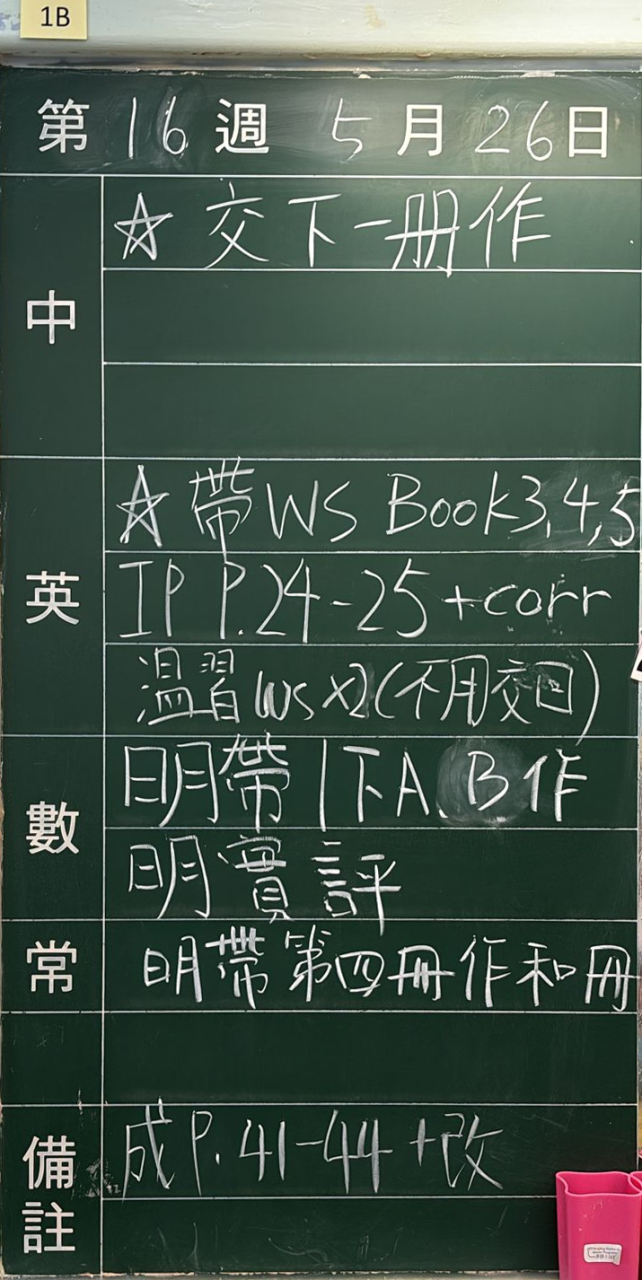 1B
第16週 5月26日
中
☆ 交下一册作
英
☆ 帶WS Book3,4,5
IP P.24-25+corr
溫習WS×2(不用交回)
數
明帶1下A、B作
明實評
常
明帶第四冊作和冊
備註
成P.41-44+改